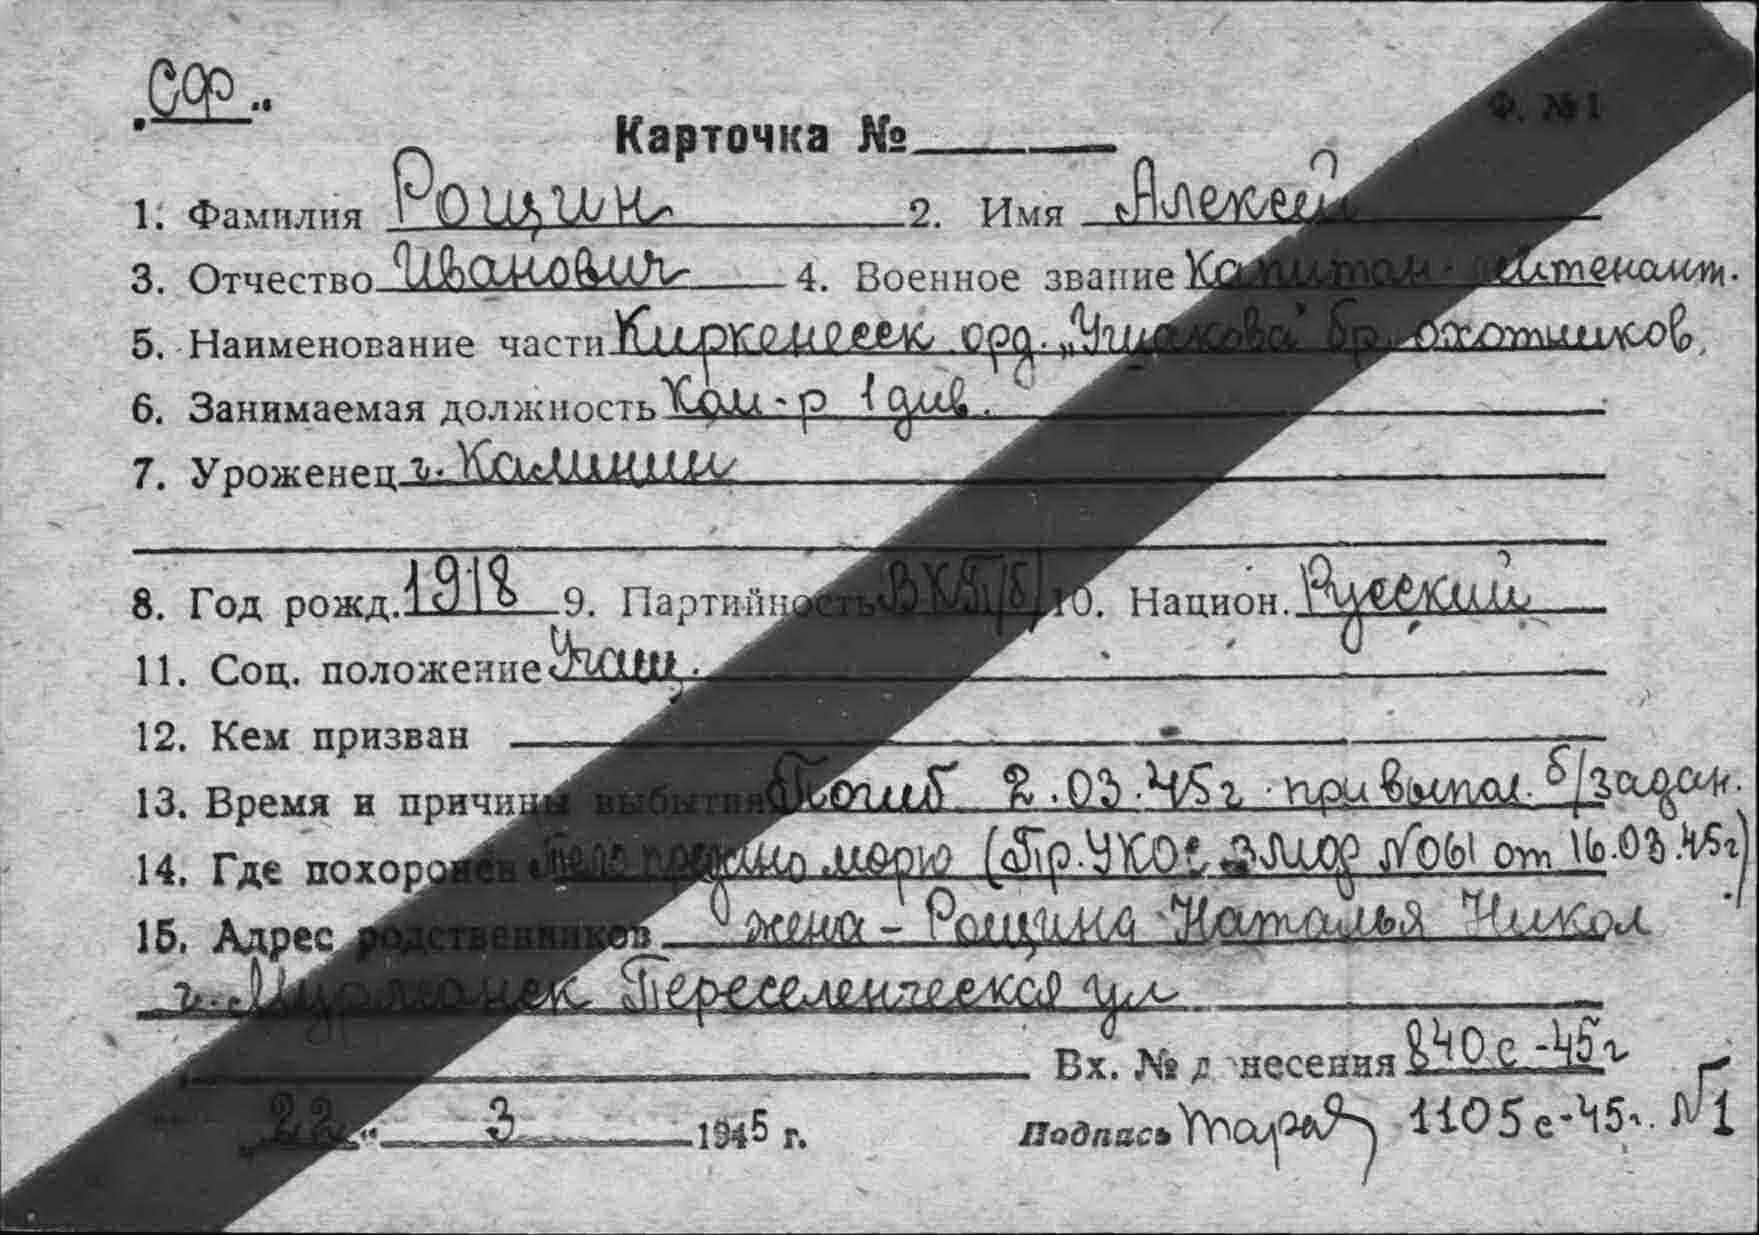 „СФ“
Ф. №1
Карточка №
1. Фамилия Рощин 2. Имя Алексей
3. Отчество Иванович 4. Военное звание Капитан-лейтенант.
5. Наименование части Киркенесск. орд. „Ушакова“ бр. охотников,
6. Занимаемая должность Ком-р 1 див.
7. Уроженец г. Калинин
8. Год рожд. 1918 9. Партийность ВКП/б/ 10. Национ. Русский
11. Соц. положение Учащ.
12. Кем призван
13. Время и причины выбытия Погиб 2.03.45г. при выпол. б/задан.
14. Где похоронен Тело предано морю (Пр. УКОС ВМФ №061 от 16.03.45г)
15. Адрес родственников жена - Рощина Наталья Никол
г. Мурманск Переселенческая ул
Вх. № донесения 840с-45г
„22“ 3 1945 г. Подпись 1105с-45г. №1